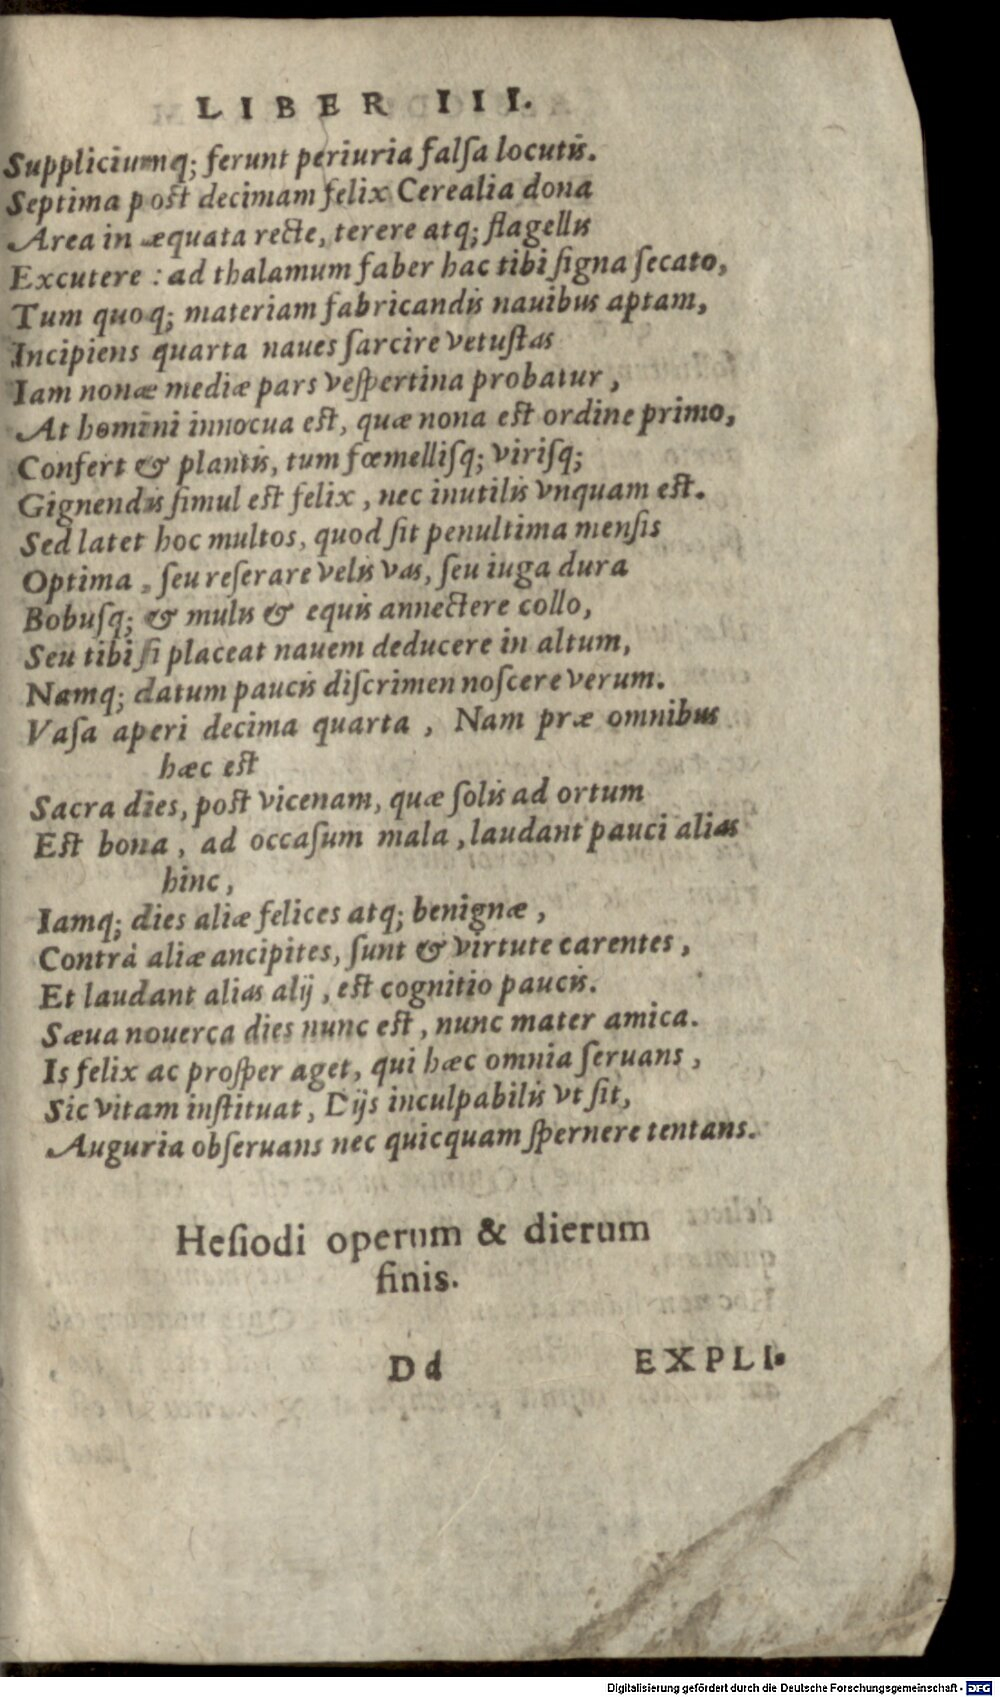 LIBER III.
Suppliciumq; ferunt periuria falſa locutis.
Septima post decimam felix Cerealia dona
Area in æquata recte, terere atq; flagellis
Excutere : ad thalamum faber hac tibi ſigna ſecato,
Tum quoq; materiam fabricandis nauibus aptam,
Incipiens quarta naues ſarcire vetuſtas
Iam nonæ mediæ pars veſpertina probatur,
At homini innocua est, quæ nona est ordine primo,
Confert & plantis, tum fœmelliſq; viriſq;
Gignendis ſimul est felix, nec inutilis vnquam est.
Sed latet hoc multos, quod ſit penultima menſis
Optima, ſeu reſerare velis vas, ſeu iuga dura
Bobuſq; & mulis & equis annectere collo,
Seu tibi ſi placeat nauem deducere in altum,
Namq; datum paucis diſcrimen noſcere verum.
Vaſa aperi decima quarta, Nam præ omnibus
hæc est
Sacra dies, post vicenam, quæ ſolis ad ortum
Est bona, ad occaſum mala, laudant pauci alias
hinc,
Iamq; dies aliæ felices atq; benignæ,
Contrà aliæ ancipites, ſunt & virtute carentes,
Et laudant alias alij, est cognitio paucis.
Sæua nouerca dies nunc est, nunc mater amica.
Is felix ac proſper aget, qui hæc omnia ſeruans,
Sic vitam inſtituat, Dijs inculpabilis vt ſit,
Auguria obſeruans nec quicquam ſpernere tentans.
Heſiodi operum & dierum
finis.
Dd EXPLI-
Digitalisierung gefördert durch die Deutsche Forschungsgemeinschaft - DFG